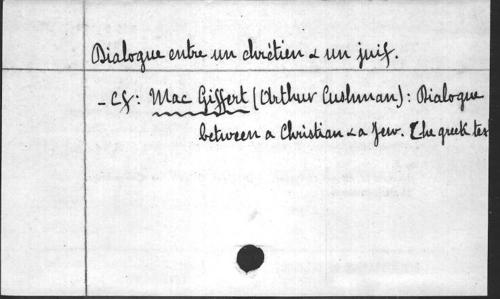 Dialogue entre un chrétien & un juif.
- Cf: Mac Giffert (Arthur Cushman): Dialogue
between a Christian & a Jew. The greek tex